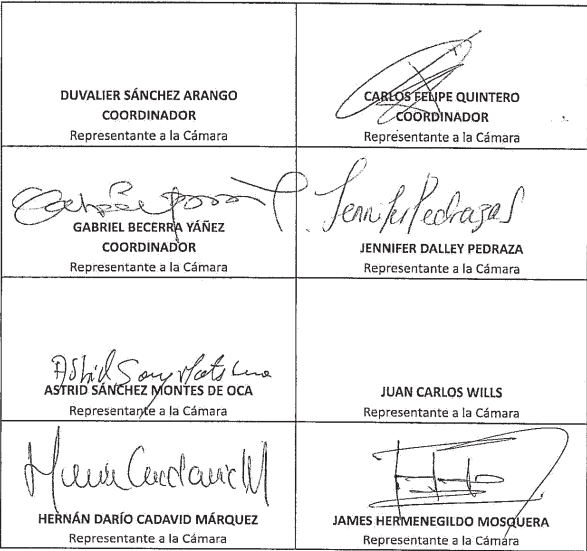 DUVALIER SÁNCHEZ ARANGO
COORDINADOR
Representante a la Cámara
CARLOS FELIPE QUINTERO
COORDINADOR
Representante a la Cámara
GABRIEL BECERRA YÁÑEZ
COORDINADOR
Representante a la Cámara
Jennifer Pedraza
JENNIFER DALLEY PEDRAZA
Representante a la Cámara
Astrid
ASTRID SÁNCHEZ MONTES DE OCA
Representante a la Cámara
JUAN CARLOS WILLS
Representante a la Cámara
Cadavid M
HERNÁN DARÍO CADAVID MÁRQUEZ
Representante a la Cámara
JAMES HERMENEGILDO MOSQUERA
Representante a la Cámara